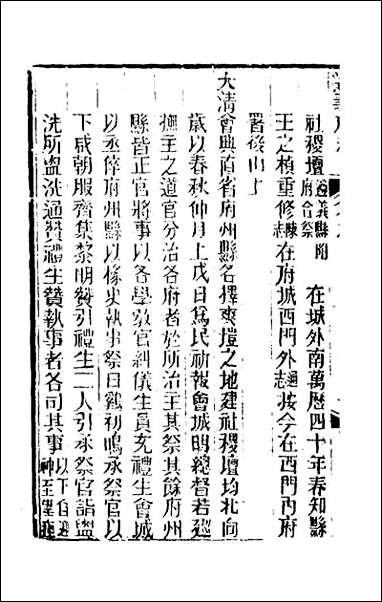 社稷壇遵義縣附府合祭 在城外南萬歷四十年春知縣
王之楨重修陳志在府城西門外通志按今在西門內府
署後山上
大清會典直省府州縣各擇爽塏之地建社稷壇均北向
歲以春秋仲月上戊日為民祈報會城明總督若巡
撫主之道官分治各府者於所治主其祭其餘府州
縣皆正官將事以各學敎官糾儀生員充禮生會城
以丞倅府州縣以掾史執事祭日雞初鳴承祭官以
下咸朝服齊集黎明贊引禮生二人引承祭官詣盥
洗所盥洗通贊禮生贊執事者各司其事以下自迎神至望瘞